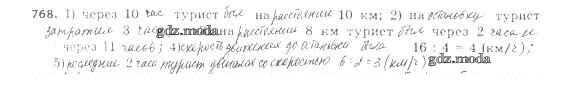 768. 1) через 10 час турист был на расстоянии 10 км; 2) на остановку турист
затратил 3 часа gdz.moda на расстоянии 8 км турист был через 2 часа и
через 11 часов; 4) скорость движения до остановки была 16 : 4 = 4 (км/г);
5) последние 2 часа турист двигался со скоростью 6 : 2 = 3 (км/г) gdz.moda